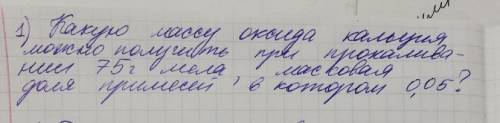 1) Какую массу оксида кальция
можно получить при прокалива-
нии 75г мела, масковая
доля примесей, в котором 0,05?